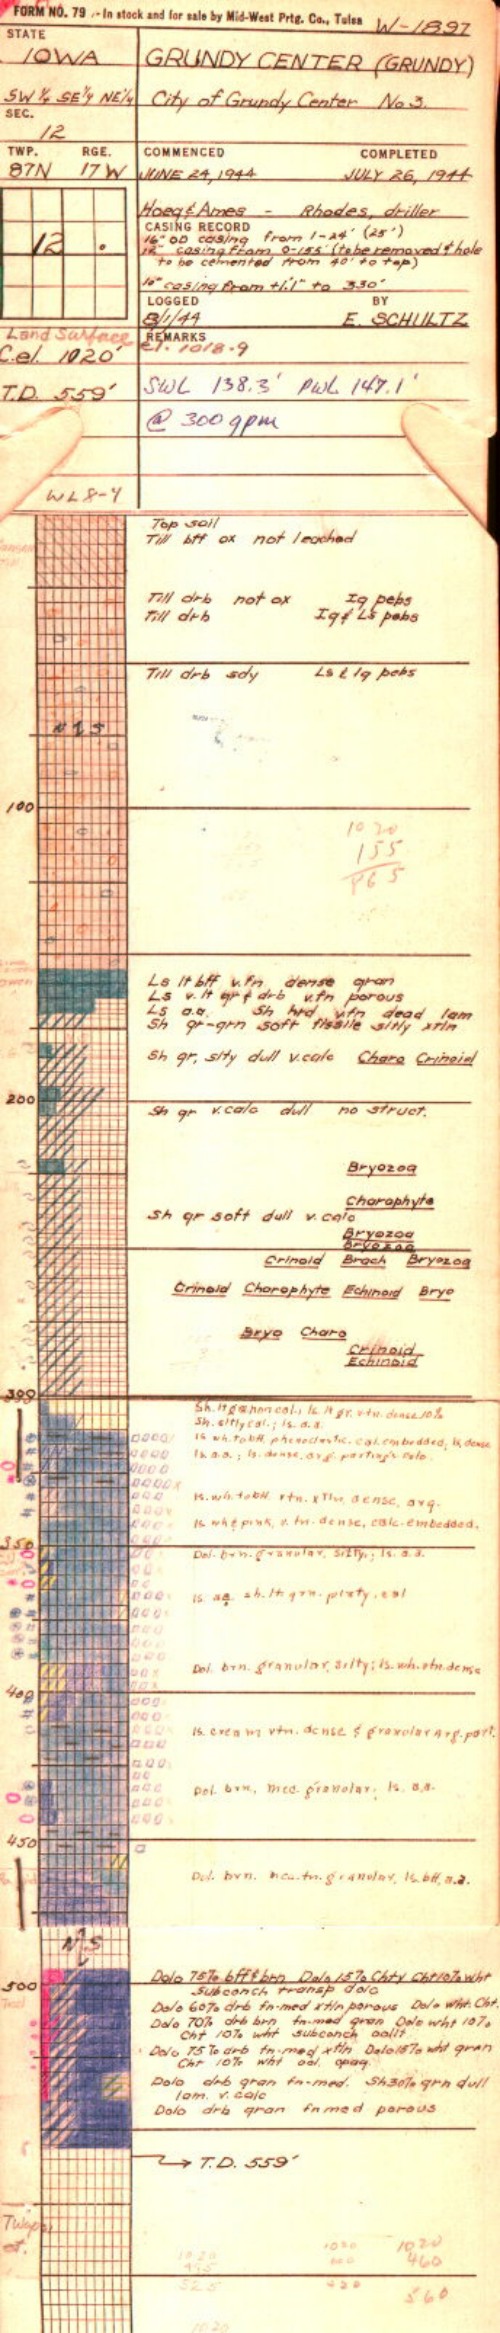 FORM NO. 79 - In stock and for sale by Mid-West Prtg. Co., Tulsa W-1897
STATE
IOWA
GRUNDY CENTER (GRUNDY)
SW ¼ SE¼ NE¼
City of Grundy Center No 3.
SEC.
12
TWP. RGE.
87N 17W
COMMENCED COMPLETED
JUNE 24, 1944 JULY 26, 1944
Hoeg & Ames - Rhodes, driller
CASING RECORD
16" OD casing from 1-24' (25')
12" casing from 0-155' (to be removed & hole
to be cemented from 40' to top)
10" casing from +1.1" to 330'
12
LOGGED BY
8/1/44 E. SCHULTZ
Land Surface
REMARKS
C.el. 1020'
el. 1018.9
T.D. 559'
SWL 138.3' PWL 147.1'
@ 300 gpm
WL8-4
Top soil
Till bff ox not leached
Till drb not ox Ig pebs
Till drb Ig & Ls pebs
Till drb sdy Ls & Ig pebs
N I S
100
1020
155
865
Ls lt bff v.fn dense gran
Ls v. lt gr & drb v.fn porous
Ls a.a. Sh hrd v.fn dead lam
Sh gr-grn soft fissile silty xtln
Sh gr, slty dull v.calc Chara Crinoid
200
Sh gr v.calc dull no struct.
Bryozoa
Charophyte
Sh gr soft dull v.calc
Bryozoa
Bryozoa
Crinoid Brach Bryozoa
Crinoid Charophyte Echinoid Bryo
Bryo Chara
Crinoid
Echinoid
300
Sh. lt grn non cal.; ls. lt gr. vfn. dense 10%
Sh. silty cal.; ls. a.a.
ls. wh. to bff. cal. embedded, ls. dense
ls. a.a.; ls. dense, arg. partings
ls. wh. to bff. vfn. xtln, dense, arg.
ls. wh & pink, v. fn. dense, calc. embedded.
350
Dol. brn. granular, silty.; ls. a.a.
ls. aa. sh. lt. grn. platy. cal
Dol. brn. granular, silty; ls. wh. vfn. dense
400
ls. cream vfn. dense & granular arg. part.
Dol. brn, med. granular. ls. a.a.
450
Dol. brn. granular, ls. bff, a.a.
N S
500
Dolo 75% bff & brn Dolo 15% Chty Cht 10% wht
Subconch transp dolo
Dolo 60% drb fn-med xtln porous Dolo wht. Cht.
Dolo 70% drb brn fn-med gran Dolo wht 10%
Cht 10% wht subconch oolit
Dolo 75% drb fn-med xtln Dolo 15% wht gran
Cht 10% wht ool. opaq.
Dolo drb gran fn-med. Sh 30% grn dull
lam. v. calc
Dolo drb gran fn med porous
T.D. 559'
1020 1020
460
560
1020